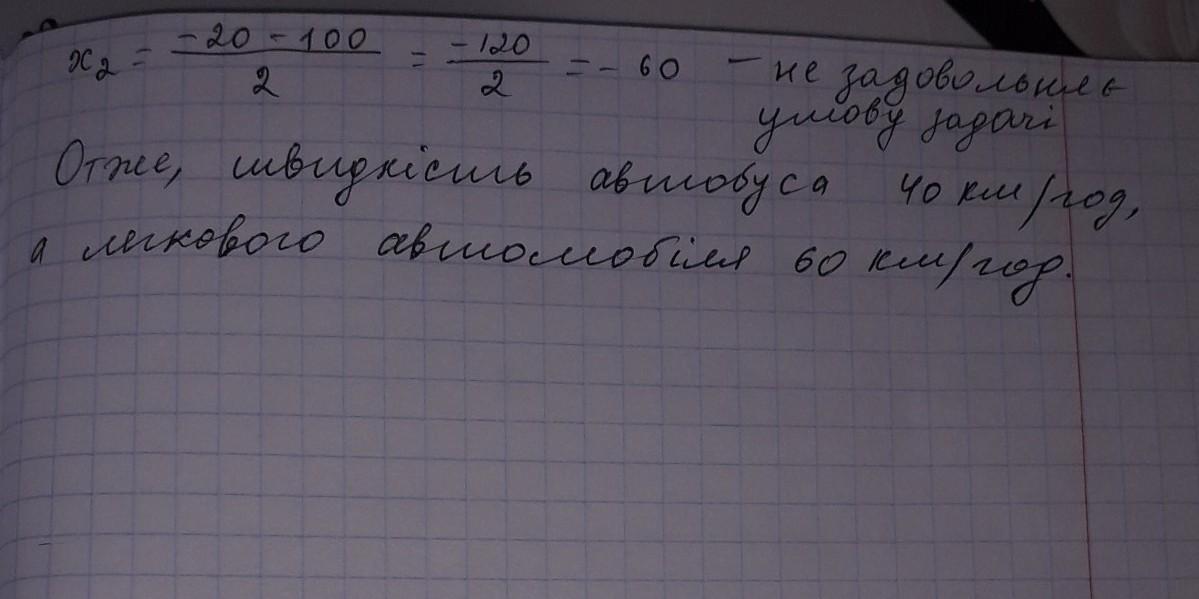 x₂ = (-20 - 100)/2 = -120/2 = - 60 — не задовольняє
умову задачі
Отже, швидкість автобуса 40 км/год,
а легкового автомобіля 60 км/год.